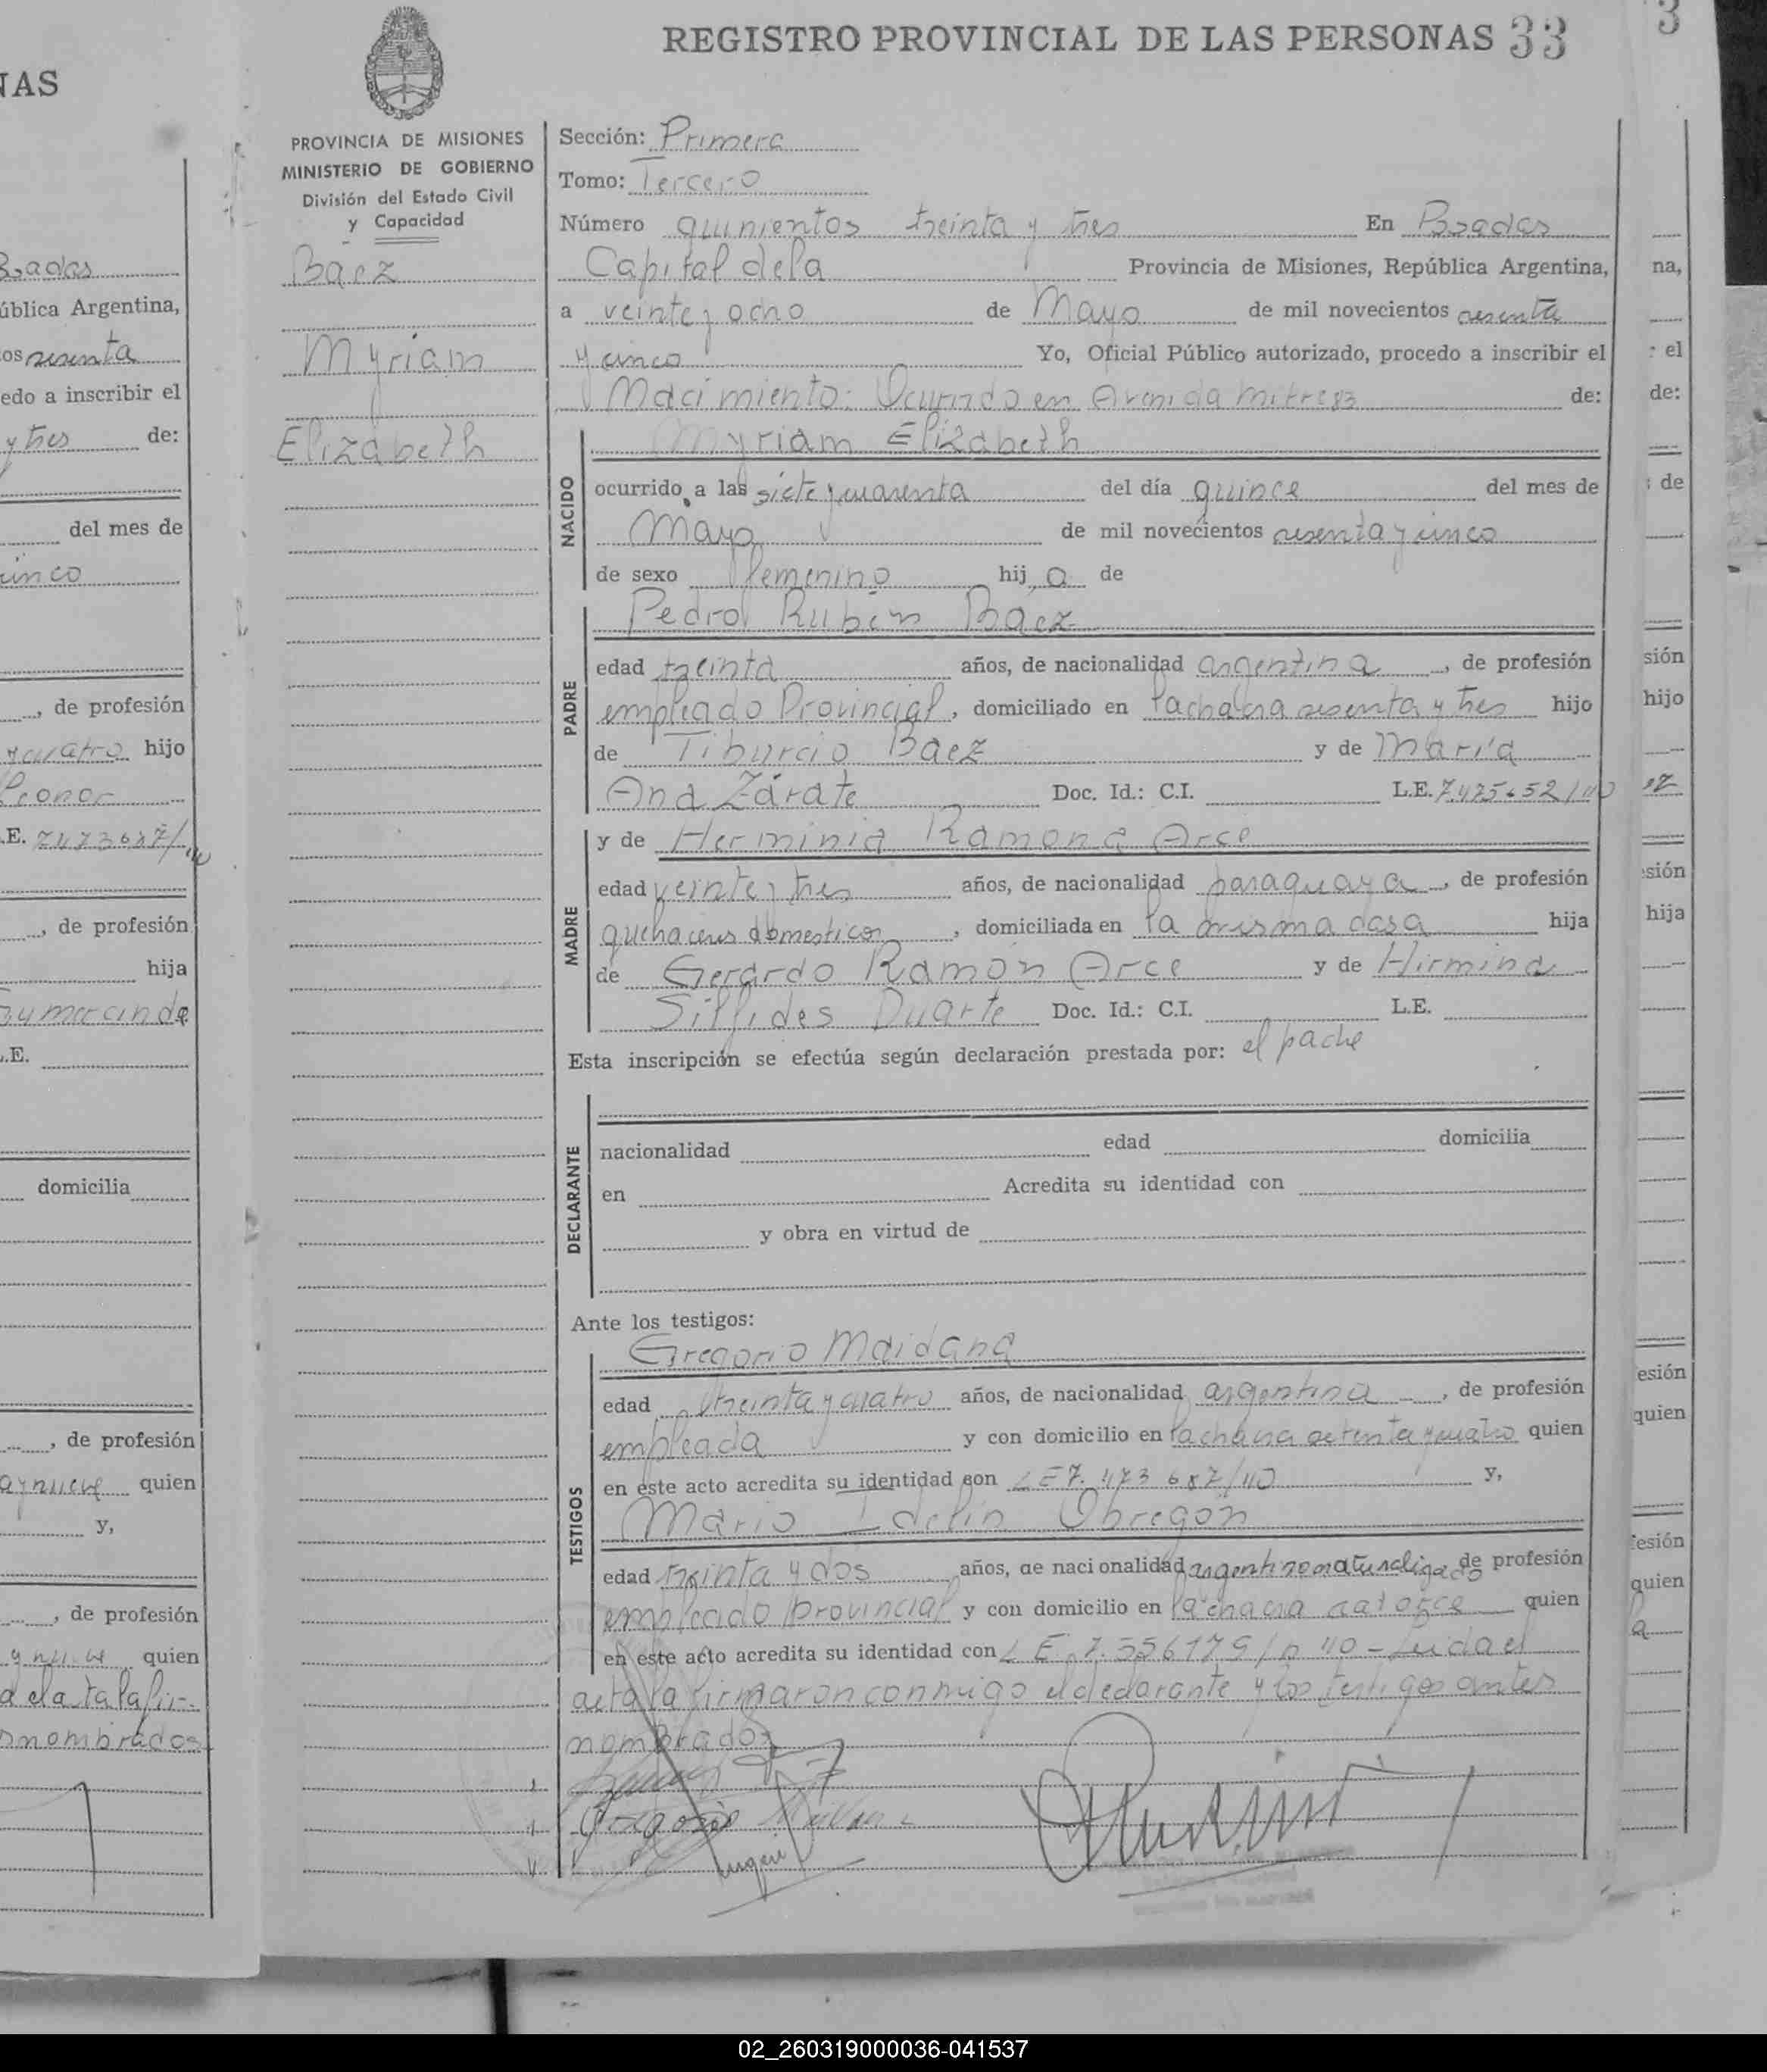 NAS
Bsadas
ública Argentina,
os sesenta
edo a inscribir el
y tres de:
del mes de
cinco
, de profesión
y cuatro hijo
Leonor
.E. 7473687/
, de profesión
hija
Gumercinda
.E.
domicilia
, de profesión
quien
y,
, de profesión
quien
nombrados
REGISTRO PROVINCIAL DE LAS PERSONAS 33
PROVINCIA DE MISIONES
MINISTERIO DE GOBIERNO
División del Estado Civil
y Capacidad
Baez
Myriam
Elizabeth
Sección: Primera
Tomo: Tercero
Número quinientos treinta y tres En Posadas
Capital de la Provincia de Misiones, República Argentina,
a veinte y ocho de Mayo de mil novecientos sesenta
y cinco Yo, Oficial Público autorizado, procedo a inscribir el
Nacimiento: Ocurrido en Avenida mitre 83 de:
NACIDO
Myriam Elizabeth
ocurrido a las siete y cuarenta del día quince del mes de
Mayo de mil novecientos sesenta y cinco
de sexo femenino hij a de
PADRE
Pedro Rubén Báez
edad treinta años, de nacionalidad argentina, de profesión
empleado Provincial, domiciliado en la chacra sesenta y tres hijo
de Tiburcio Baez y de María
Ana Zárate Doc. Id.: C.I. L.E. 7.475.652/40
MADRE
y de Herminia Ramona Arce
edad veinte y tres años, de nacionalidad paraguaya, de profesión
quehaceres domesticos, domiciliada en la misma casa hija
de Gerardo Ramón Arce y de Hirmina
Silfides Duarte Doc. Id.: C.I. L.E.
Esta inscripción se efectúa según declaración prestada por: el padre
DECLARANTE
nacionalidad edad domicilia
en Acredita su identidad con
y obra en virtud de
Ante los testigos:
TESTIGOS
Gregorio Maidana
edad treinta y cuatro años, de nacionalidad argentina, de profesión
empleada y con domicilio en la chacra setenta y cuatro quien
en este acto acredita su identidad con LE 7.473 687/40 y,
Mario Idelin Obregón
edad treinta y dos años, de nacionalidad argentino naturalizado de profesión
empleado provincial y con domicilio en la chacra catorce quien
en este acto acredita su identidad con LE 7.556179/0 40 - Leida el
acta la firmaron conmigo el declarante y los testigos antes
nombrados
3
na,
el
de:
de
sión
hijo
ez
sión
hija
esión
quien
esión
quien
a
02_260319000036-041537